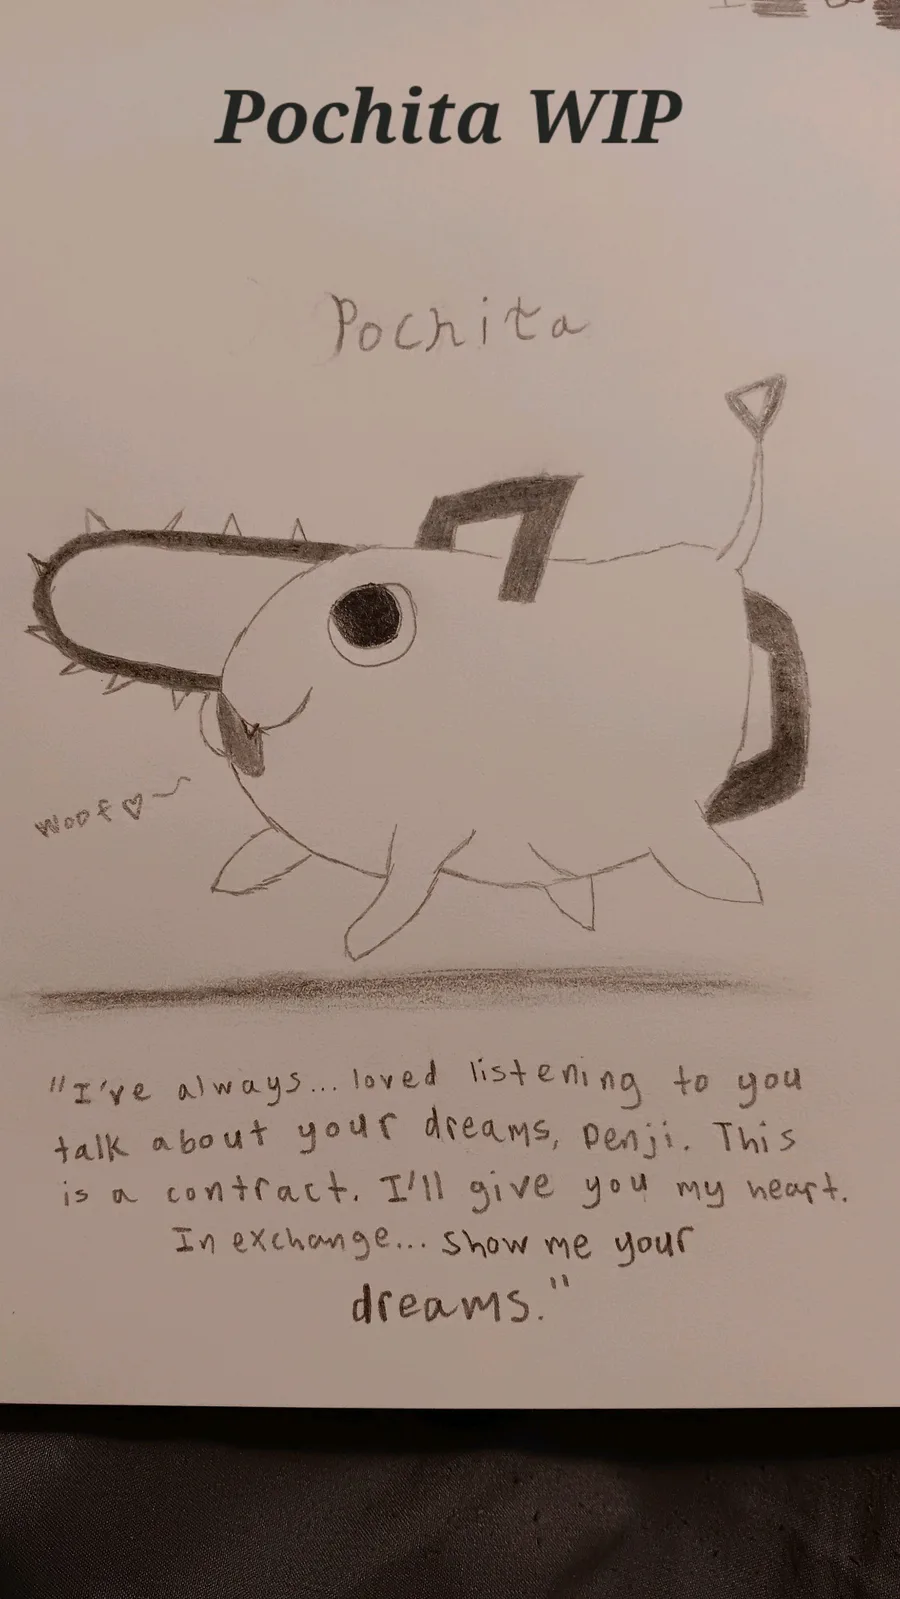 Pochita WIP
Pochita
Woof♡~
"I've always... loved listening to you
talk about your dreams, Denji. This
is a contract. I'll give you my heart.
In exchange... show me your
dreams."